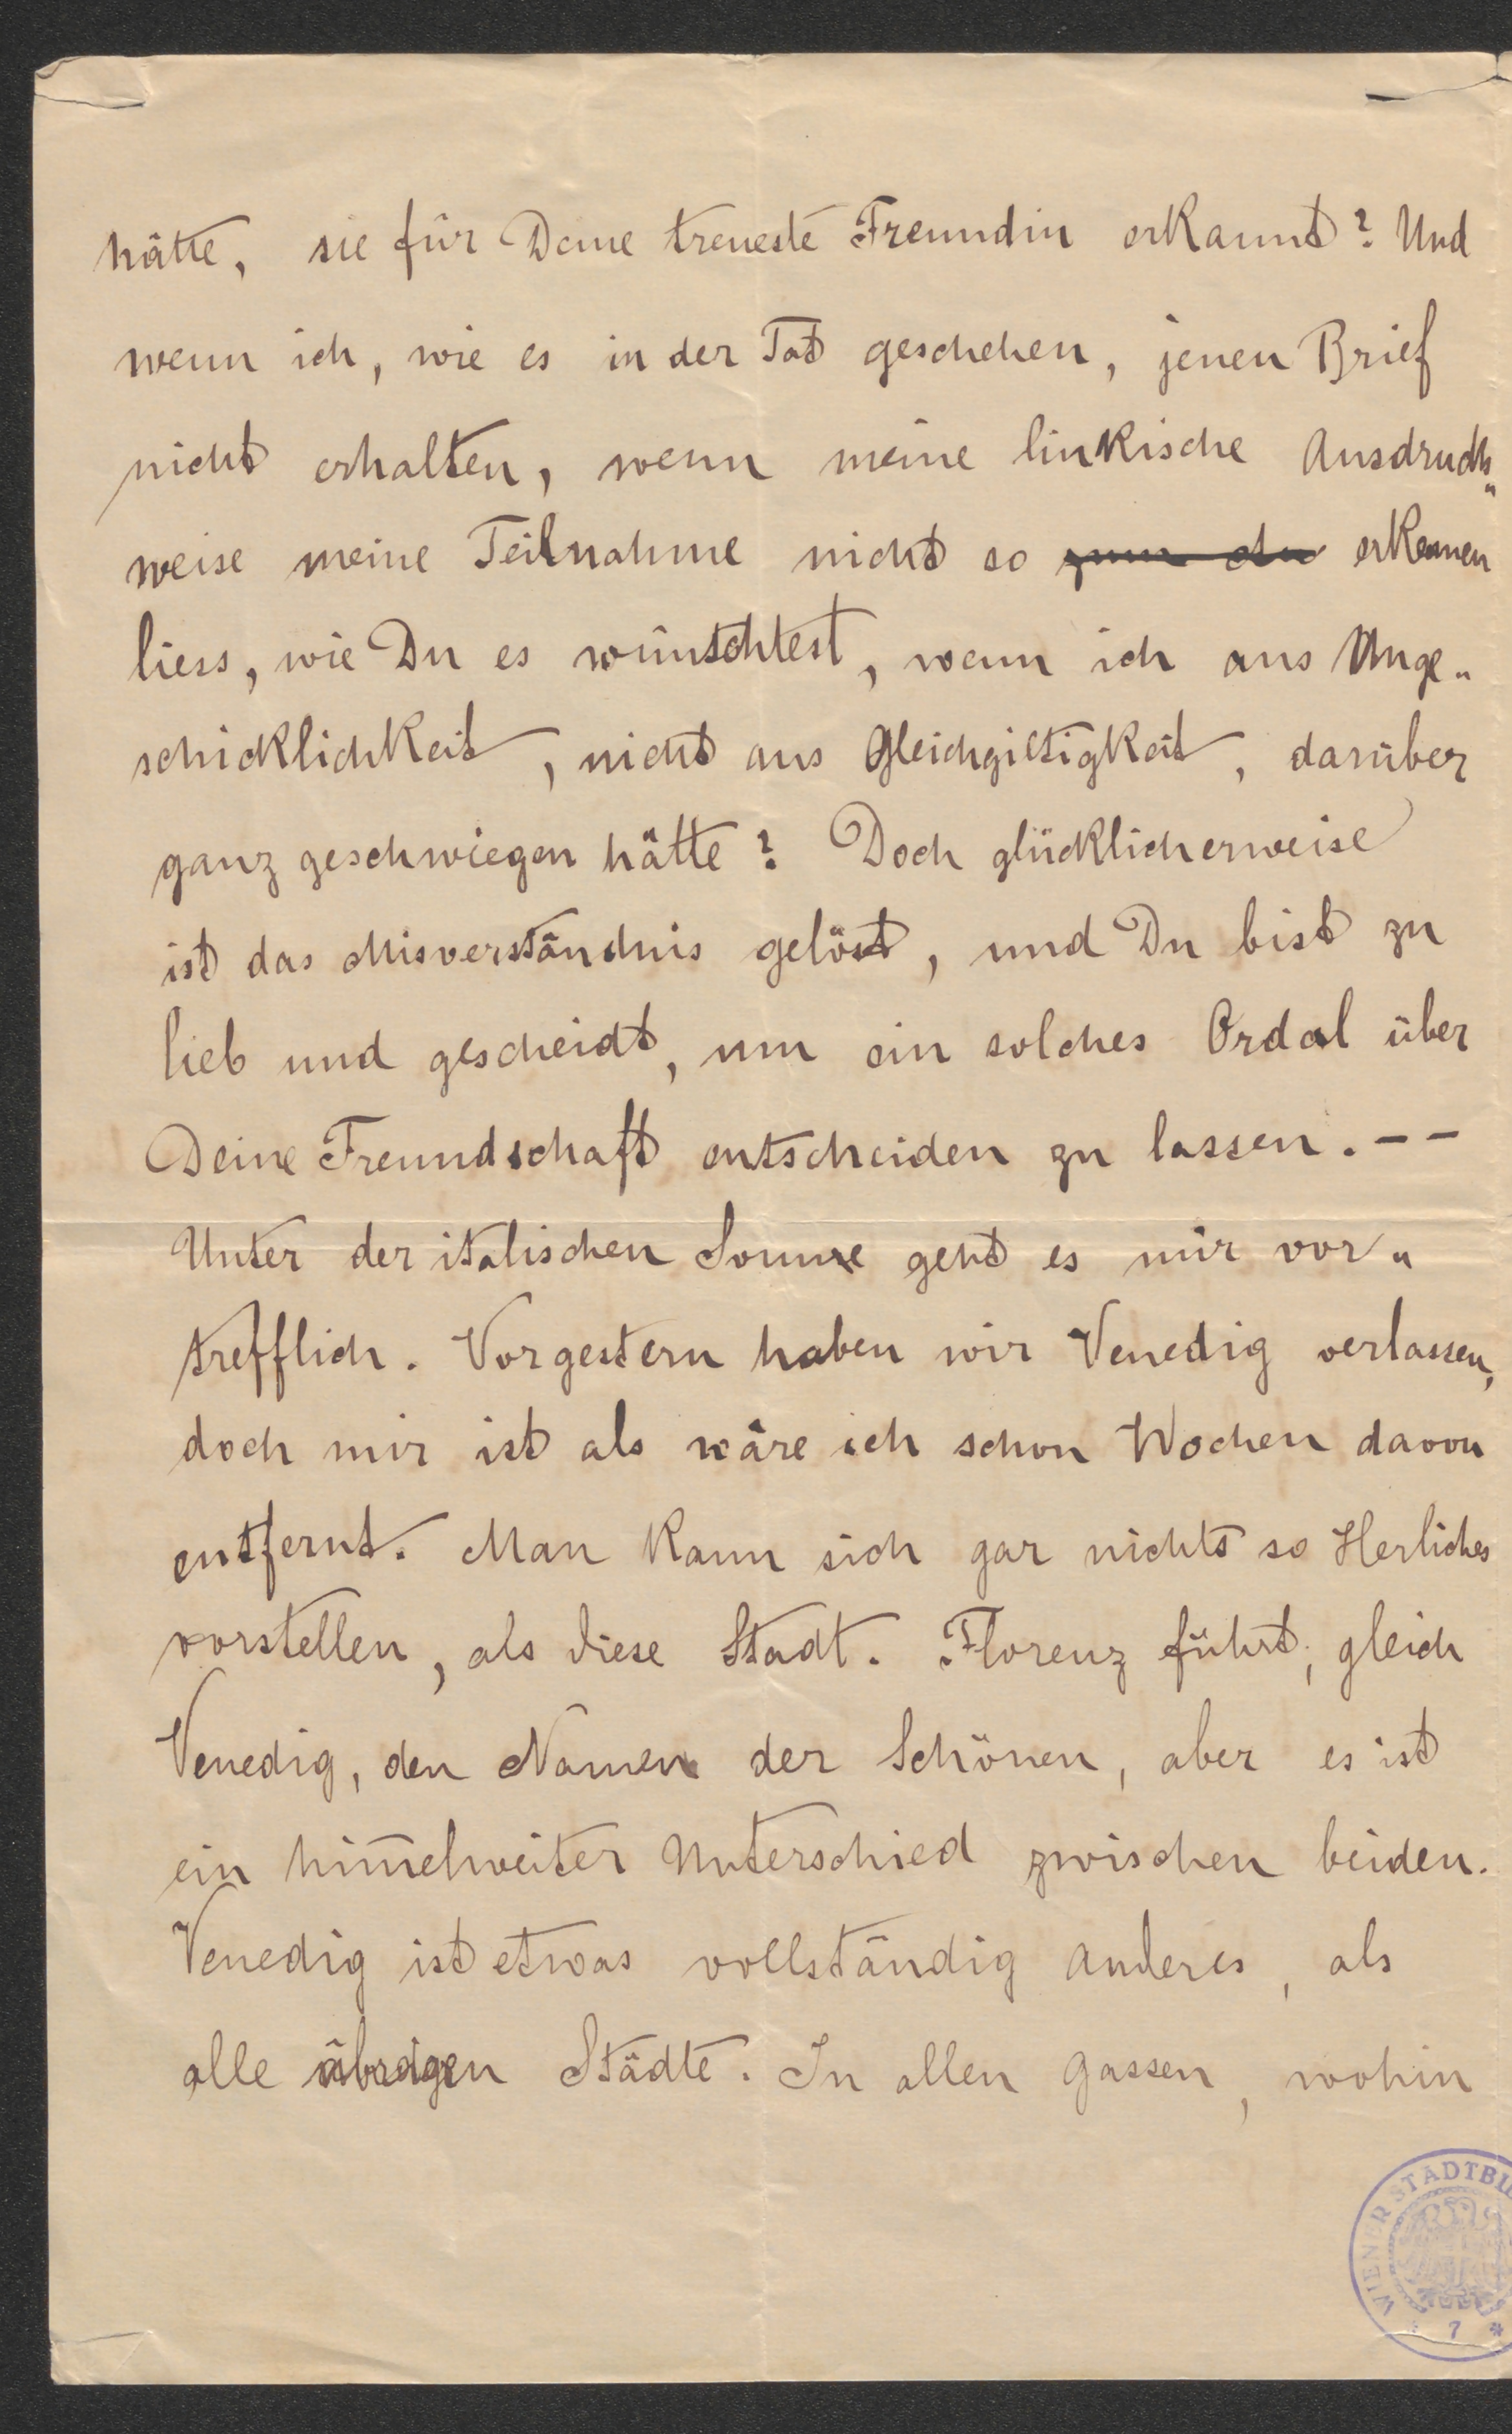 hätte, sie für Deine treueste Freundin erkannt? Und
wenn ich, wie es in der Tat geschehen, jenen Brief
nicht erhalten, wenn meine linkische Ausdrucks„
weise meine Teilnahme nicht so erkennen
liess, wie Du es wünschtest, wenn ich aus Unge„
schicklichkeit, nicht aus Gleichgiltigkeit, darüber
ganz geschwiegen hätte? Doch glücklicherweise
ist das Misverständnis gelöst, und Du bist zu
lieb und gescheidt, um ein solches Ordal über
Deine Freundschaft entscheiden zu lassen. – –
Unter der italischen Sonne geht es mir vor„
trefflich. Vorgestern haben wir Venedig verlassen,
doch mir ist als wäre ich schon Wochen davon
entfernt. Man kann sich gar nichts so Herliches
vorstellen, als diese Stadt. Florenz führt, gleich
Venedig, den Namen der Schönen, aber es ist
ein him̅elweiter Unterschied zwischen beiden.
Venedig ist etwas vollständig anderes, als
alle übrigen Städte. In allen Gassen, wohin
WIENER STADTBI
7 *